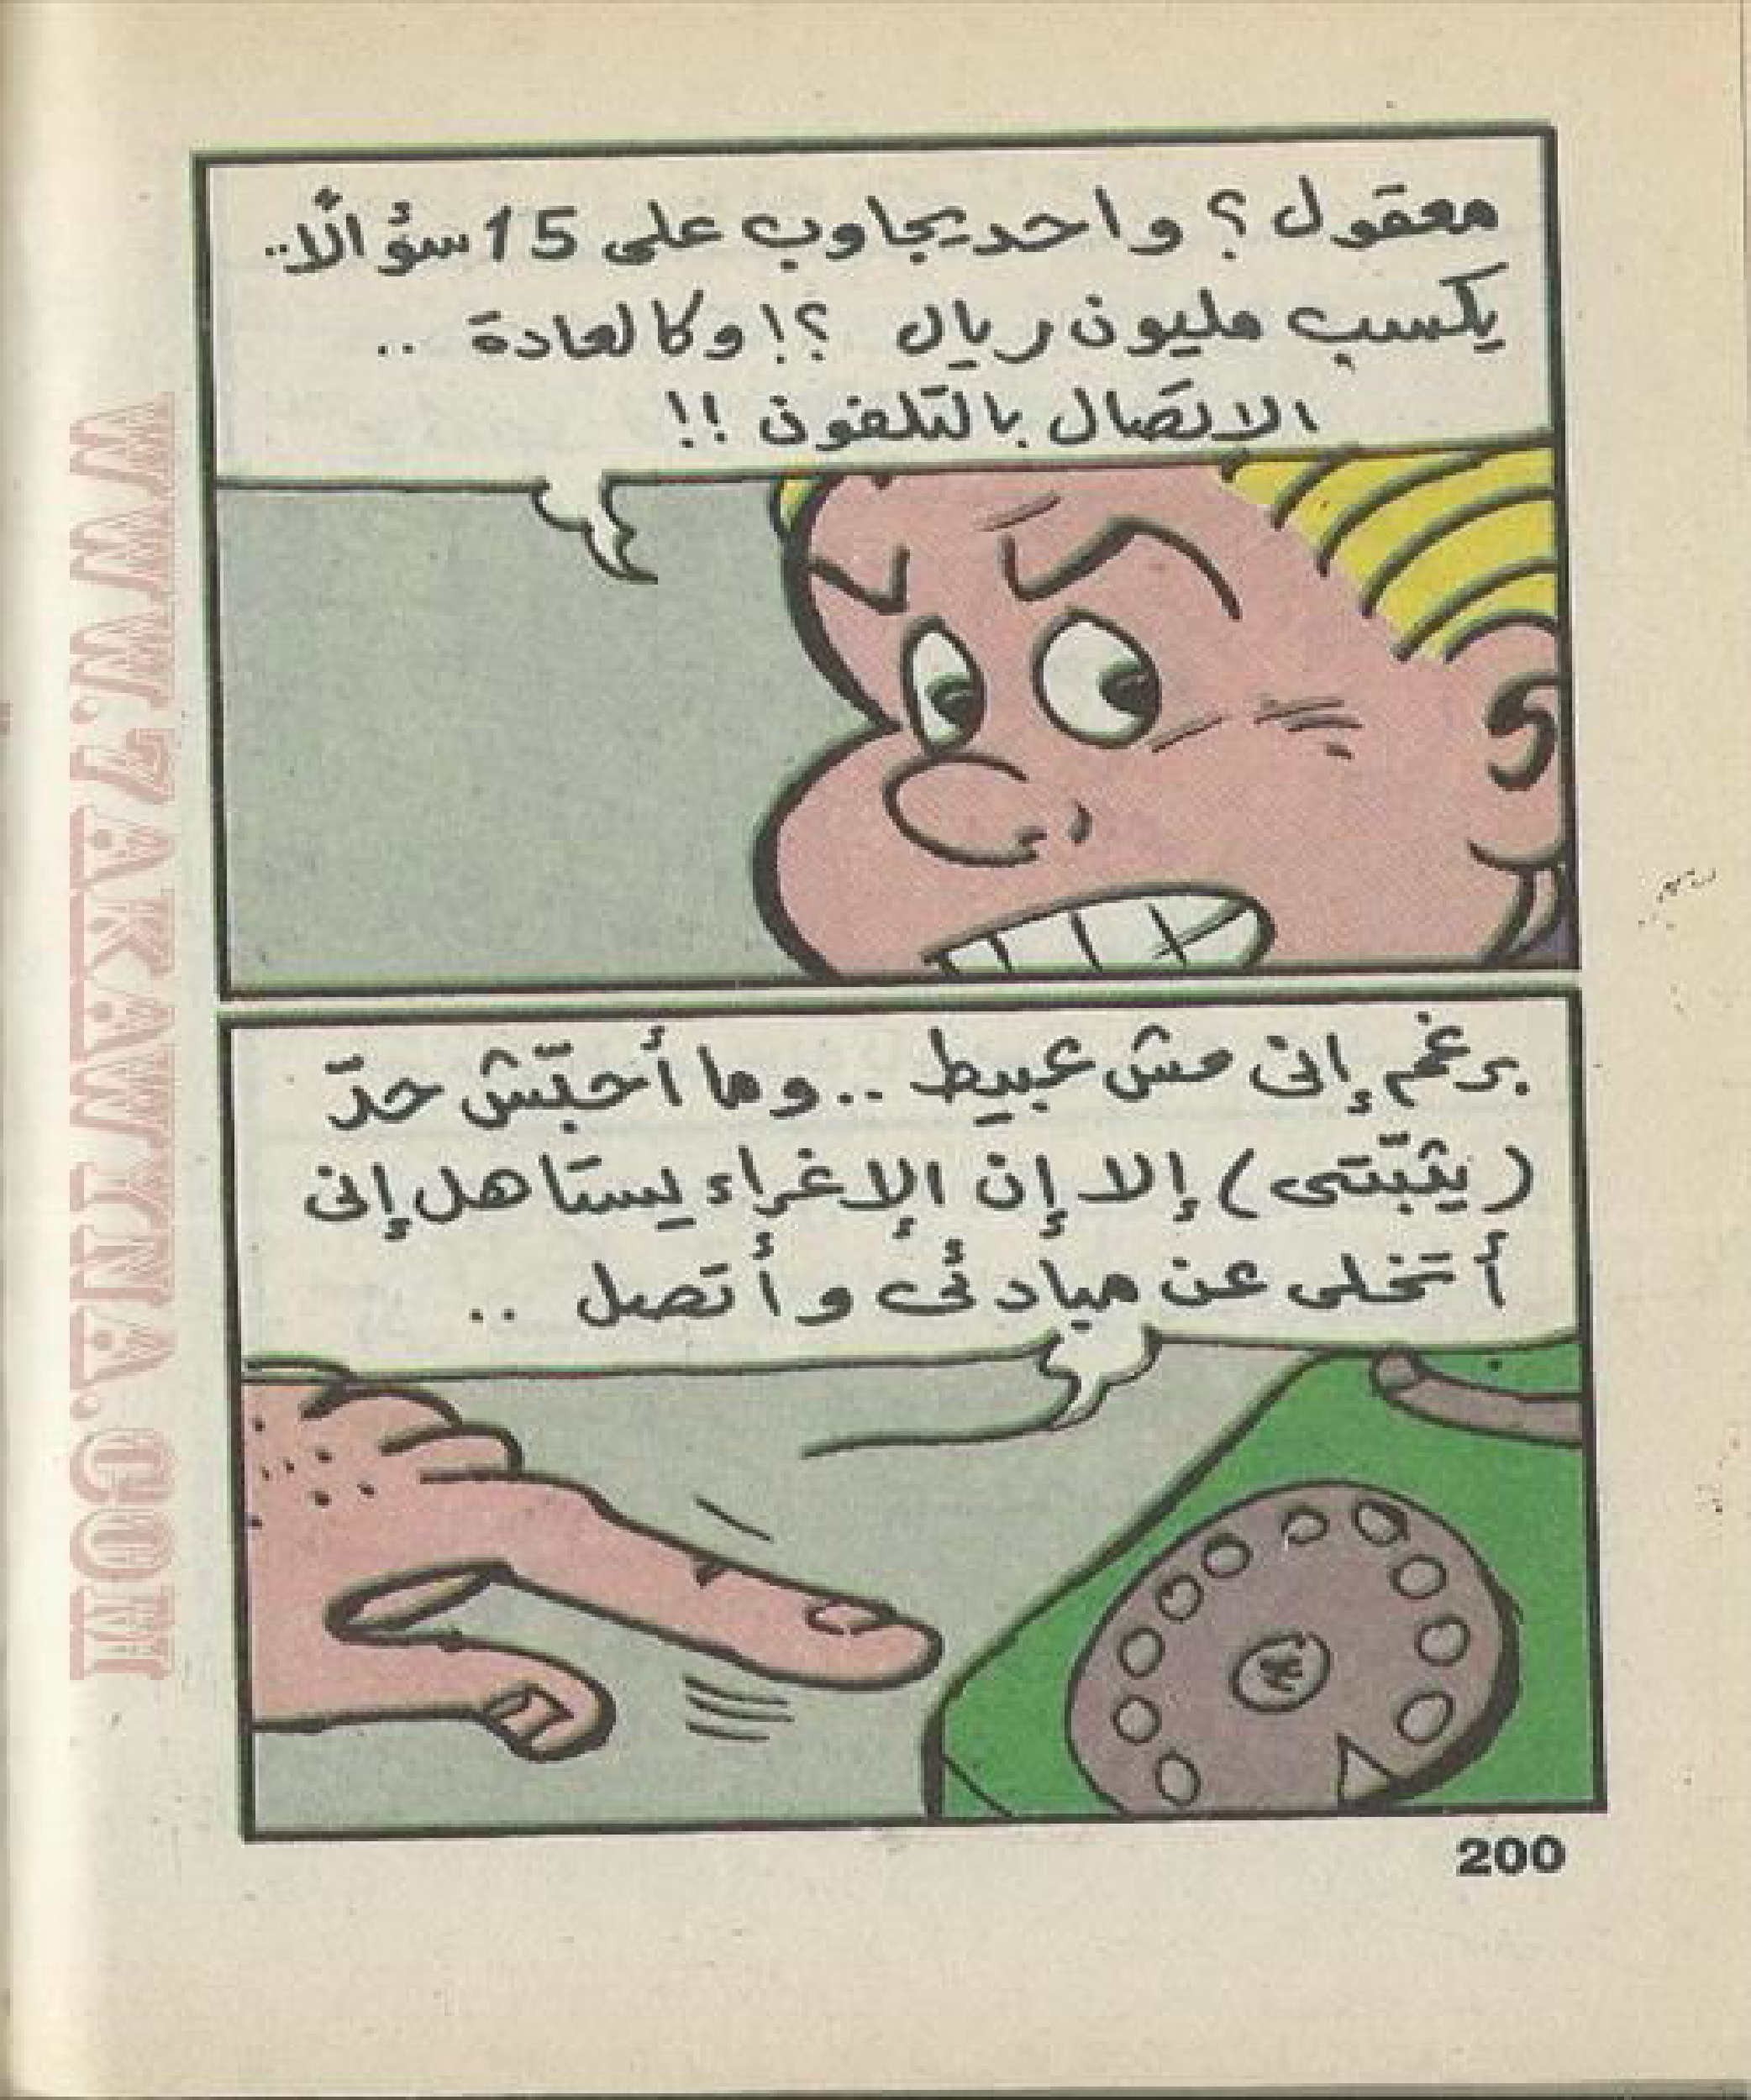 معقول ؟ واحد يجاوب على 15 سؤالًا..
يكسب مليون ريال ؟! وكالعادة ..
الاتصال بالتلفون !!
برغم إنى مش عبيط .. وما أحبّش حدّ
(يثبّتنى) إلا إن الإغراء يستاهل إنى
أتخلى عن مبادئى وأتصل ..
W
200
WWW.7AKAWYNA.COM